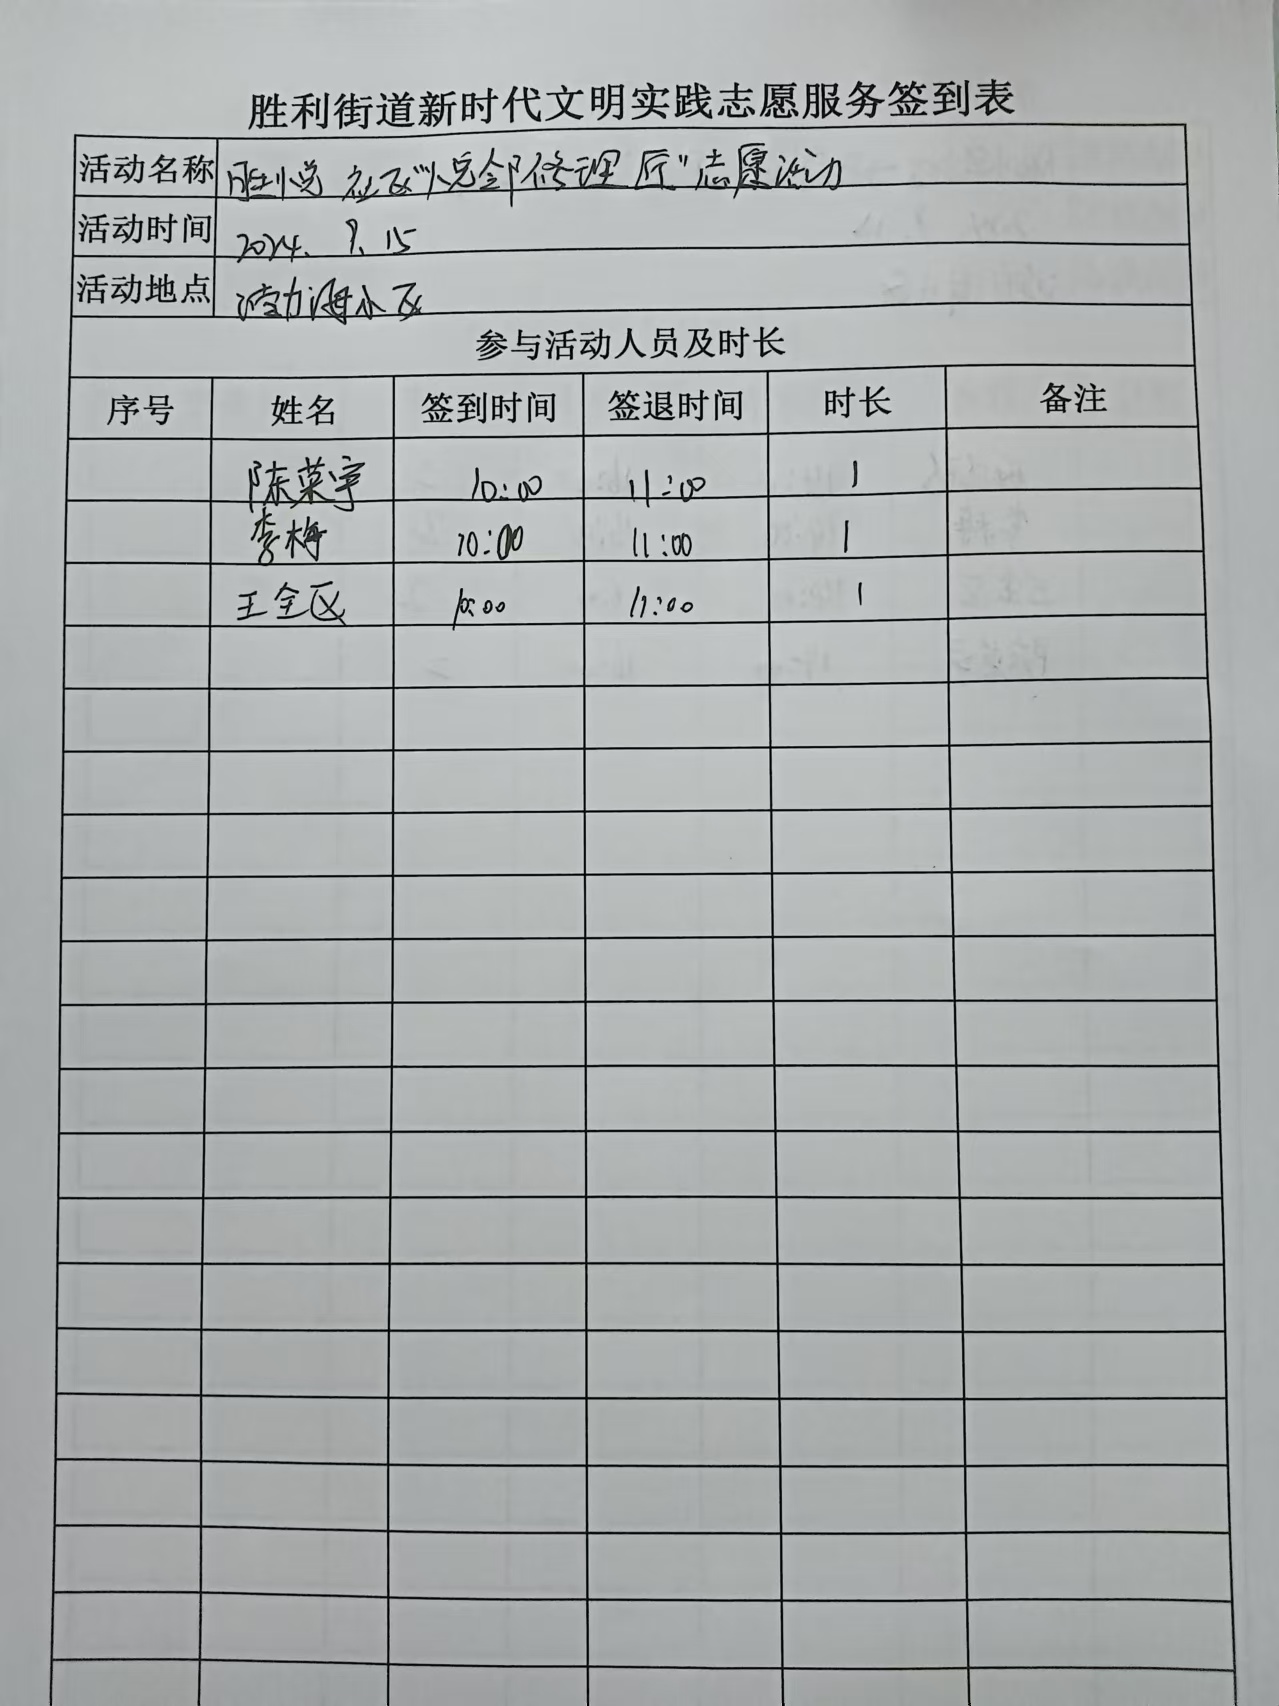 胜利街道新时代文明实践志愿服务签到表
活动名称 胜悦社区"悦邻修理匠"志愿活动
活动时间 2024. 9. 15
活动地点 小区
参与活动人员及时长
序号 姓名 签到时间 签退时间 时长 备注
陈荣宇 10:00 11:00 1
李梅 10:00 11:00 1
王全区 10:00 11:00 1